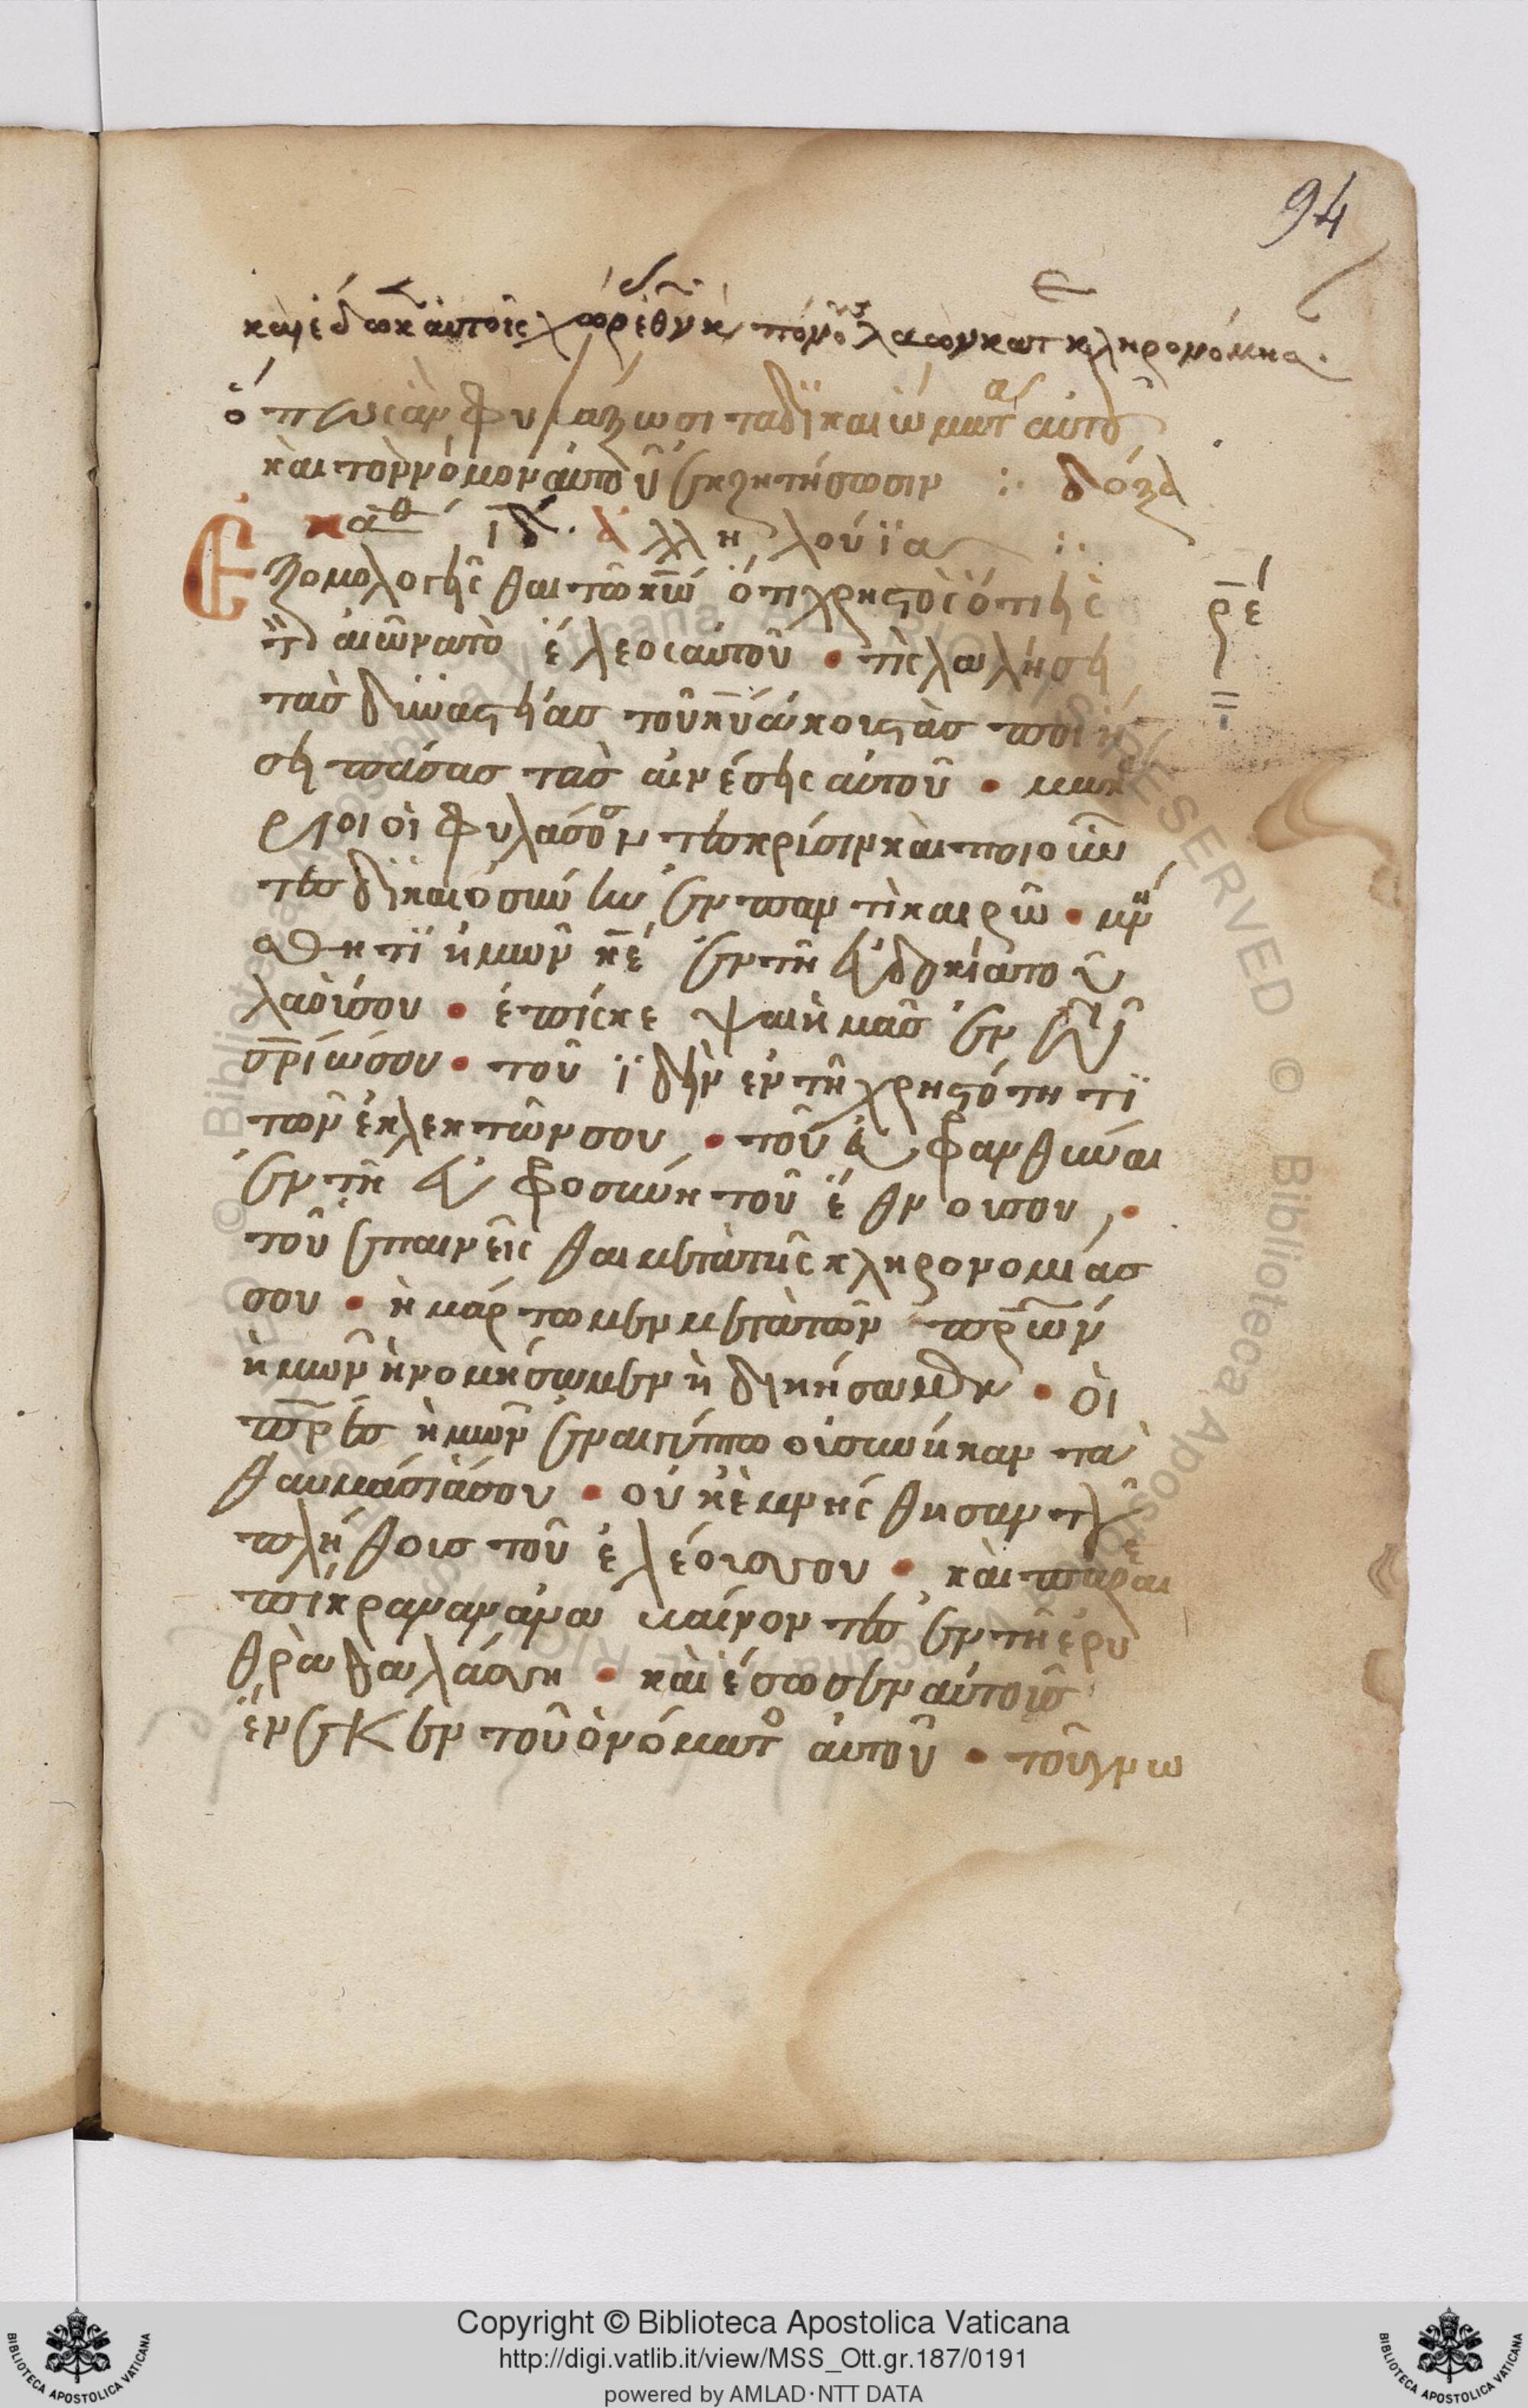 94
καὶ ἔδωκ αὐτοῖς χώρ ἐθν κ πόνους λαῶν κατ κληρονόμησα.
ὅπως ἂν φυλάξωσι τα δϊκαιώματ αὐτοῦ
καὶ τὸν νόμον αὐτοῦ ἐκζητήσωσιν :· δόξα
καθ ιδ. ἀλληλούϊα :·
Εξομολογεῖσθαι τῶ κ̅ω̅ ὅτι χρηστὸς ὅτι εἰς
ρ̅ε̅
τὸν αἰῶνα τὸ ἔλεος αὐτοῦ • τίς λαλήσει
τὰς δυναστείας τοῦ κ̅υ̅ ἀκουστὰς ποιή
σει πάσας τὰς αἰνέσεις αὐτοῦ • μακ
ριοι οἱ φυλάσον τὴν κρίσιν καὶ ποιοῦν
την δϊκαιοσύνην ἐν παντὶ καιρῶ • μν
σθητϊ ἡμῶν κ̅ε̅ ἐν τῆ εὐδοκία τοῦ
λαοῦ σου • ἐπίσκεψαι ἡμᾶς ἐν τῶ
σ̅ρ̅ί̅ω̅ σου • τοῦ ϊδεῖν εν τῆ χρηστότητϊ
τῶν ἐκλεκτῶν σου • τοῦ εὐφρανθῆναι
ἐν τῆ εὐφροσύνη τοῦ ἔθνους σου •
τοῦ ἐπαινεῖσθαι μετὰ τῆς κληρονομίας
σου • ἡμάρτωμεν μετὰ τῶν π̅ρ̅ω̅ν̅
ἡμῶν ἠνομήσωμεν ἠδικήσαμεν • οἱ
π̅ρ̅ε̅ς̅ ἡμῶν ἐν αιγύπτω οὐ συνῆκαν τὰ
θαυμάσιά σου • οὐκ ἐμνήσθησαν τοῦ
πλήθους τοῦ ἐλέους σου • καὶ παραι
πίκραναν ἀναμαίνον τες ἐν τῆ ἐρυ
θρὰ θαλάσση • καὶ ἔσωσεν αὐτοὺς
ἕνεκεν τοῦ ὀνόματο αὐτοῦ • τοῦ γνω
Copyright © Biblioteca Apostolica Vaticana
http://digi.vatlib.it/view/MSS_Ott.gr.187/0191
powered by AMLAD·NTT DATA